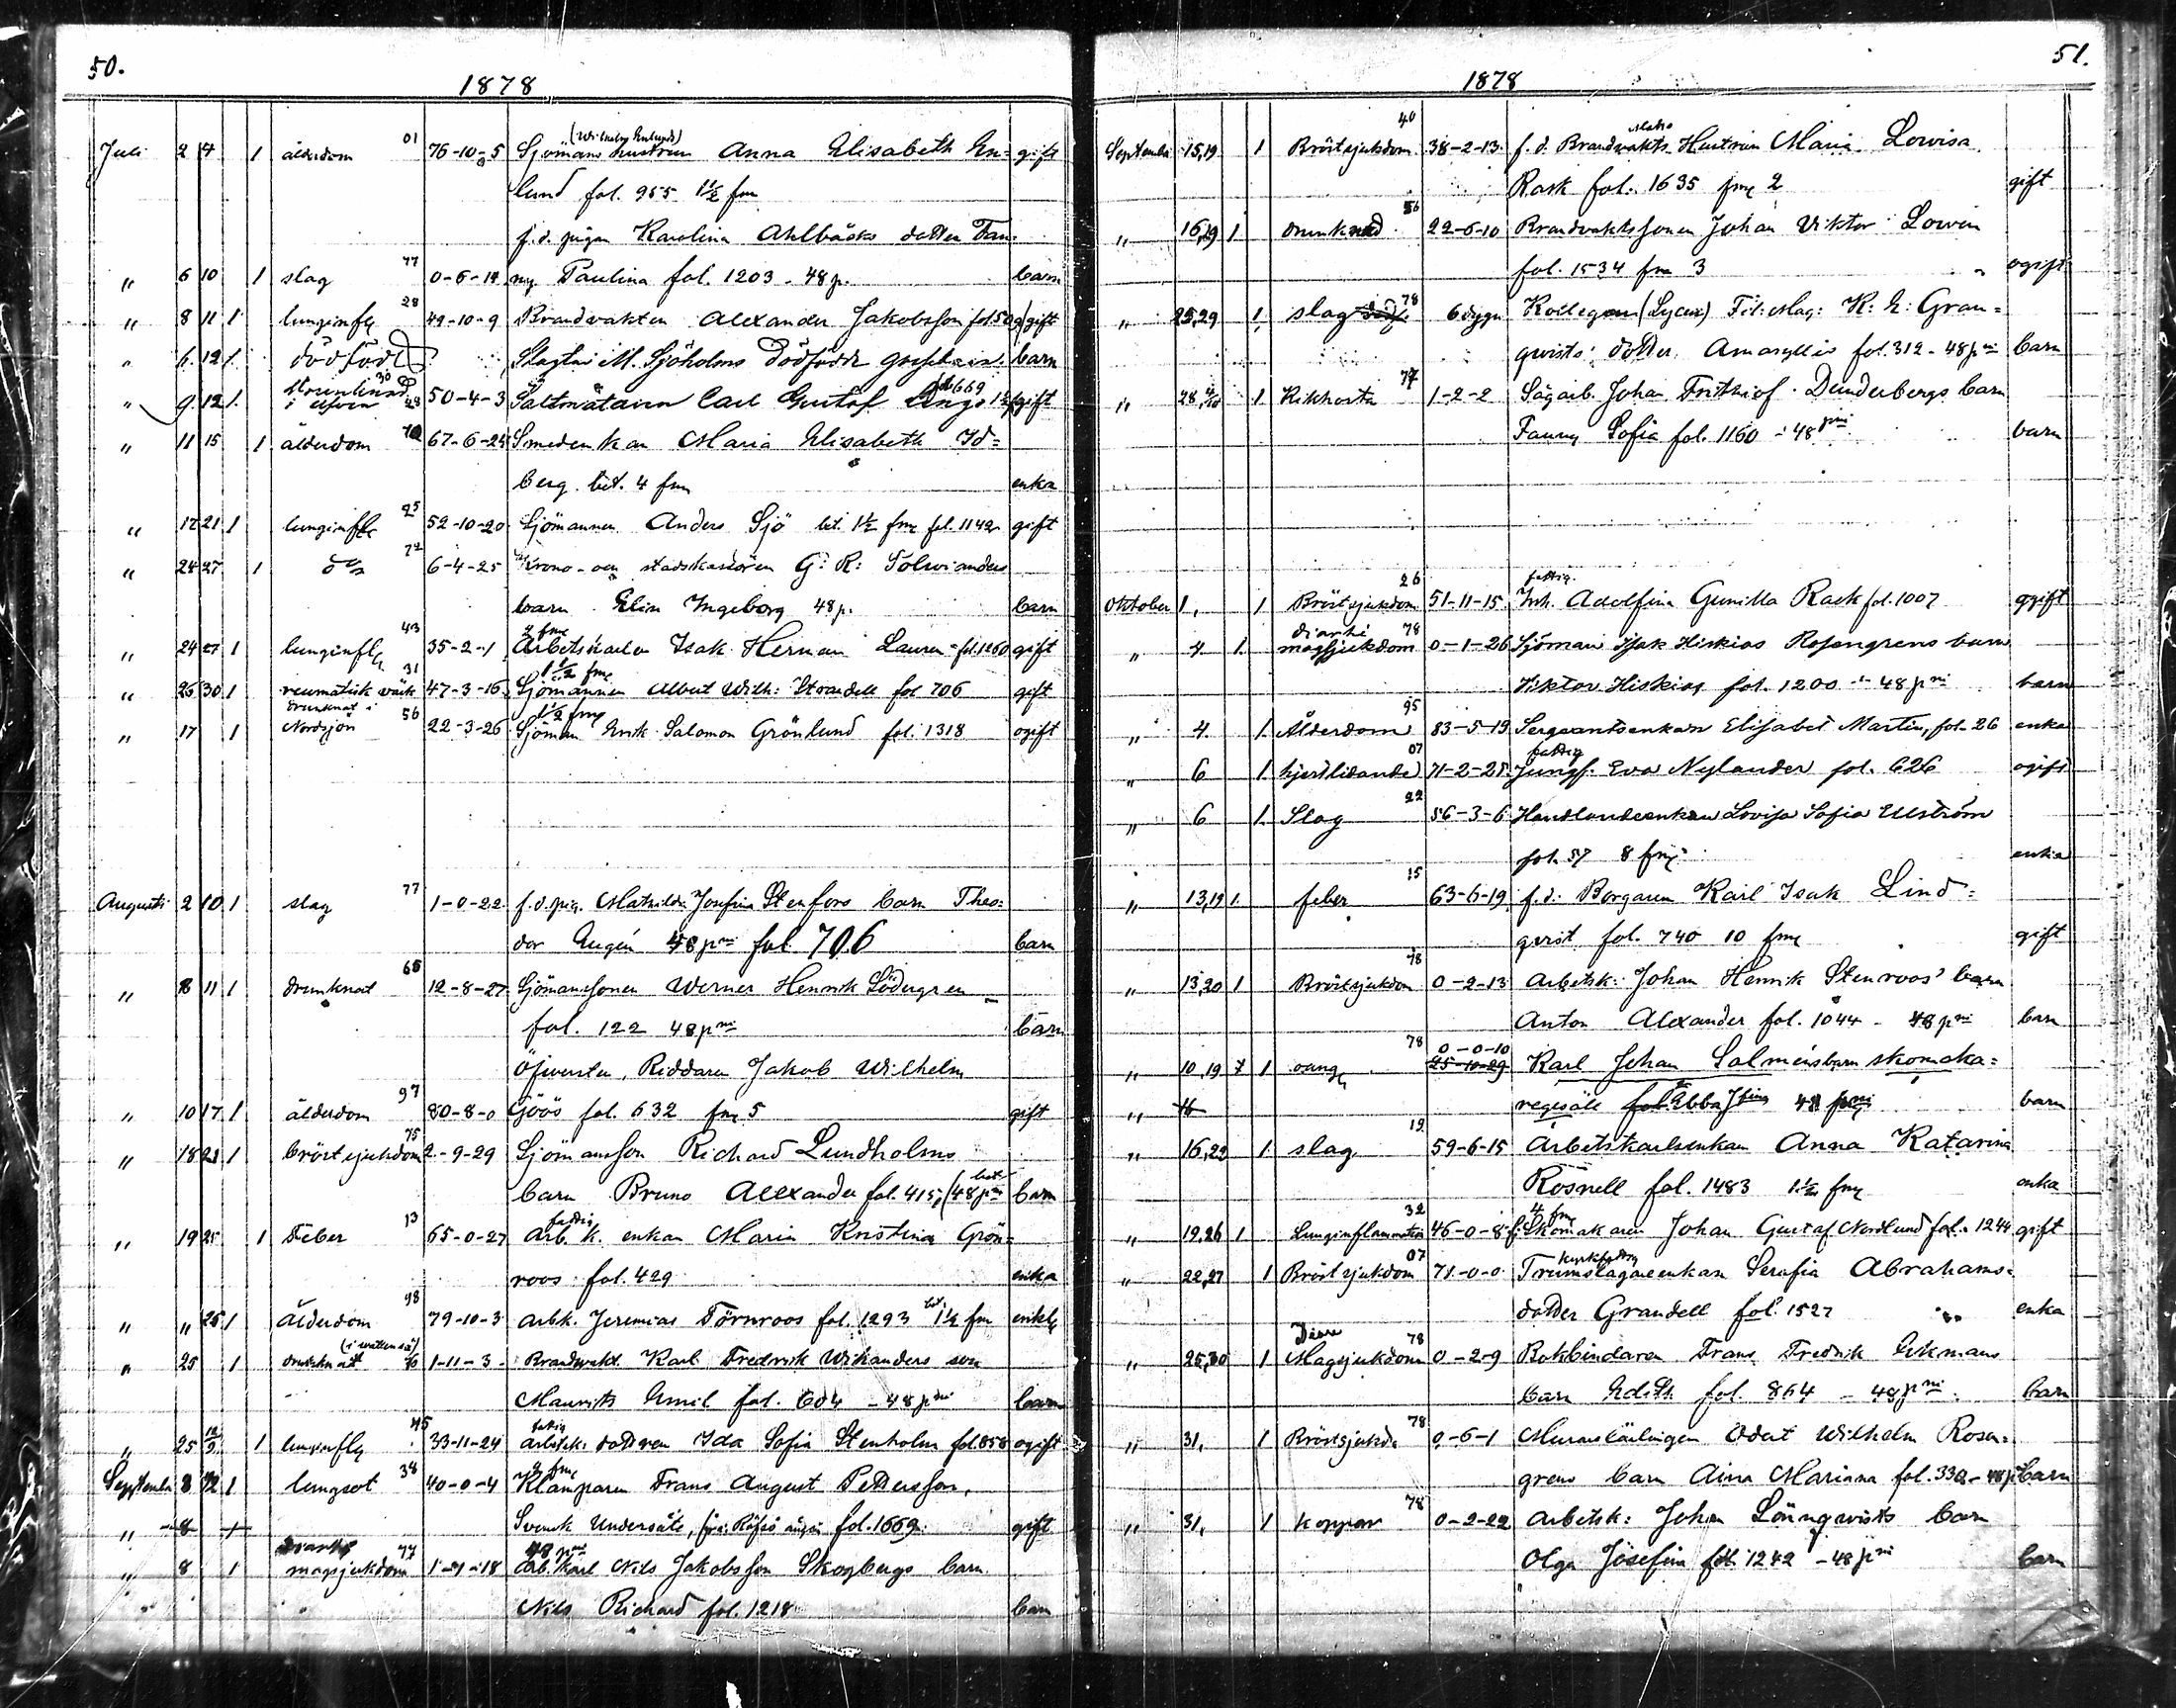 50.
1878
(Wilhelm Enlunds)
Juli 2 4 1 ålderdom 01 76-10-5 Sjömans hustrun Anna Elisabeth En- gift
lund fol. 955 1½ fm
f.d. pigan Karolina Ahlbäcks dotter Fan-
" 6 10 1 slag 77 0-6-14 ny Paulina fol. 1203 - 48 p. barn
" 8 11 1 lunginfl 28 49-10-9 Brandvakten Alexander Jakobsson gift
" 6. 12 1. dödfödt Slagtar M. Sjöholms dödfödde barn
" 9. 12 1. i elfven 50-4-3 Saltmätaren Carl Gustaf gift
" 11 15 1 ålderdom 67-6-24 Smedenkan Maria Elisabeth Id=
berg. bet. 4 fm enka
" 17 21 1 lunginfl 25 52-10-20 Sjömannen Anders Sjö bet. 1½ fm fol. 1142 gift
" 24 27 1 72 6-4-25 Krono- och stadskassören G: R: Solvianders
barn Elin Ingeborg 48 p. barn
" 24 27 1 lunginfl 43 35-2-1 Arbetskarlen Isak Herman Lauren fol. 1260 gift
1½ fm
" 25 30 1 reumatisk värk 31 47-3-16 Sjömannen Albert Wilh: Strandell fol 706 gift
drunknat i 1½ fm
" 17 1 Nordsjön 56 22-3-26 Sjöman Erik Salomon Grönlund fol. 1318 ogift
Augusti 2 10 1 slag 77 1-0-22 f.d. pig. Mathilda Josefina Stenfors barn Theo=
dor Eugén 48 pni fol. 706 barn
" 8 11 1 drunknat 65 12-8-27 Sjömanssonen Werner Henrik Södergren
fol. 122 48 pni barn
Öfversten, Riddaren Jakob Wilhelm
" 10 17 1 ålderdom 97 80-8-0 Göös fol. 632 fm 5 gift
" 18 21 1 bröstsjukdom 75 2-9-29 Sjömansson Richard Lundholms
barn Bruno Alexander fol. 415, (48 pni barn
fattig
" 19 25 1 Feber 13 65-0-27 Arb. k. enkan Maria Kristina Grön=
roos fol. 429 enka
" " 25 1 ålderdom 98 79-10-3 Arbk. Jeremias Törnroos fol. 1293 bet. 1½ fm enkl
" 25 1 drunknat 76 1-11-3 Brandvakt. Karl Fredrik Wikanders son
Maurits Emil fol. 604 - 48 pni barn
fattig
" 25 12/9 1 lunginfl 45 33-11-24 Arbetsk. dottren Ida Sofia Stenholm fol. 858 ogift
September 8 12 1 lungsot 38 40-0-4 Klamparen Frans August Pettersson,
" 8 1 Svensk Undersåte, fol. 1669. gift
48 pni
" 8 1 magsjukdom 77 1-7-18 Arb. karl Nils Jakobsson Skogbergs barn
Nils Richard fol. 1218 barn
51.
1878
September 15,19 1 Bröstsjukdom 40 38-2-13 f.d. Brandvakts Hustrun Maria Lovisa
Rask fol. 1635 fm 2 gift
" 16,19 1 drunknad 56 22-6-10 Brandvaktssonen Johan Viktor Lovin
fol. 1534 fm 3 ogift
" 25,29 1 slag 78 6 dygn Kollegan (Lyceu) Fil: Mag: K: E: Gran=
qvists dotter Amaryllis fol. 312 - 48 pni barn
" 28 1 Kikhosta 77 1-2-2 Sågarb. Johan Frithiof Dunderbergs barn
Fanny Sofia fol. 1160 - 48 pni barn
fattig.
Oktober 1, 1 Bröstsjukdom 26 51-11-15 Inh. Adolfina Gunilla Rask fol. 1007 ogift
diarhé
" 4. 1. magsjukdom 78 0-1-26 Sjöman Isak Hiskias Rosengrens barn
Viktor Hiskias fol. 1200 - 48 pni barn
" 4. 1. Ålderdom 95 83-5-19 Sergeantsenkan Elisabet Martin, fol. 26 enka
fattig
" 6 1 hjertlidande 07 71-2-25 Jungf. Eva Nylander fol. 626 ogift
" 6 1. Slag 22 56-3-6 Handlandeenkan Lovisa Sofia Ullström
fol. 57 8 fm enka
" 13,19 1. feber 15 63-6-19 f.d. Borgaren Karl Isak Lind=
qvist fol. 740 10 fm gift
" 13,20 1 Bröstsjukdom 78 0-2-13 Arbetsk: Johan Henrik Stenroos' barn
Anton Alexander fol. 1044 - 48 pni barn
0-0-10
" 10,19 1 78 25-10-29 Karl Johan Salméns barn skomaka=
" 16 regesäll fol. Ebba 48 pni barn
" 16,22 1 slag 19 59-6-15 Arbetskarlsenkan Anna Katarina
Rosnell fol. 1483 1½ fm enka
4 fm
" 19,26 1 Lunginflammation 32 46-0-8 Skomakaren Johan Gustaf Nordlund fol. 1244 gift
" 22,27 1 Bröstsjukdom 07 71-0-0 Trumslagareenkan Serafia Abrahams=
dotter Grandell fol. 1527 enka
" 25,30 1 Magsjukdom 78 0-2-9 Bokbindaren Frans Fredrik Ekmans
barn Edith fol. 864 - 48 pni barn
" 31, 1 Bröstsjukd 78 0-6-1 Murarelärlingen Edvet Wilhelm Rosen=
grens barn Aina Mariana fol. 332 - 48 p barn
" 31, 1 koppor 78 0-2-22 Arbetsk: Johan Lönnqvists barn
Olga Josefina fol. 1242 - 48 pni barn